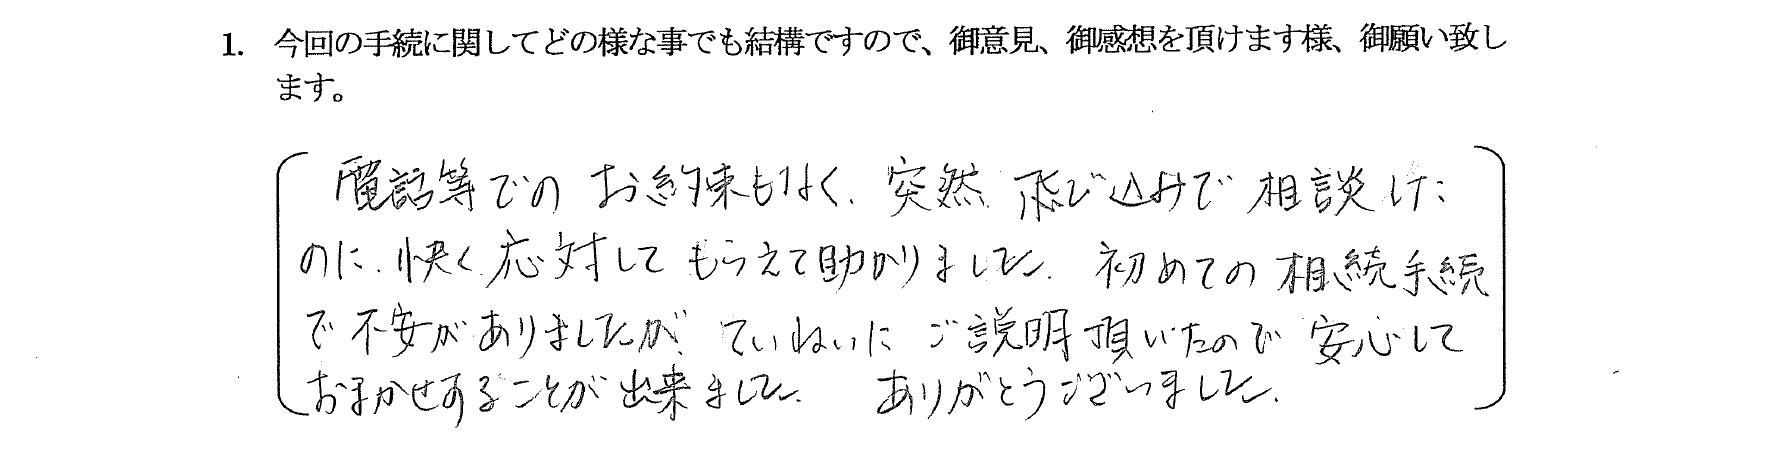 1. 今回の手続に関してどの様な事でも結構ですので、御意見、御感想を頂けます様、御願い致し
ます。
電話等での お約束もなく、突然 飛び込みで 相談した
のに、快く 応対して もらえて助かりました。初めての 相続手続
で 不安がありましたが、ていねいに ご説明頂いたので 安心して
おまかせすることが出来ました。 ありがとうございました。